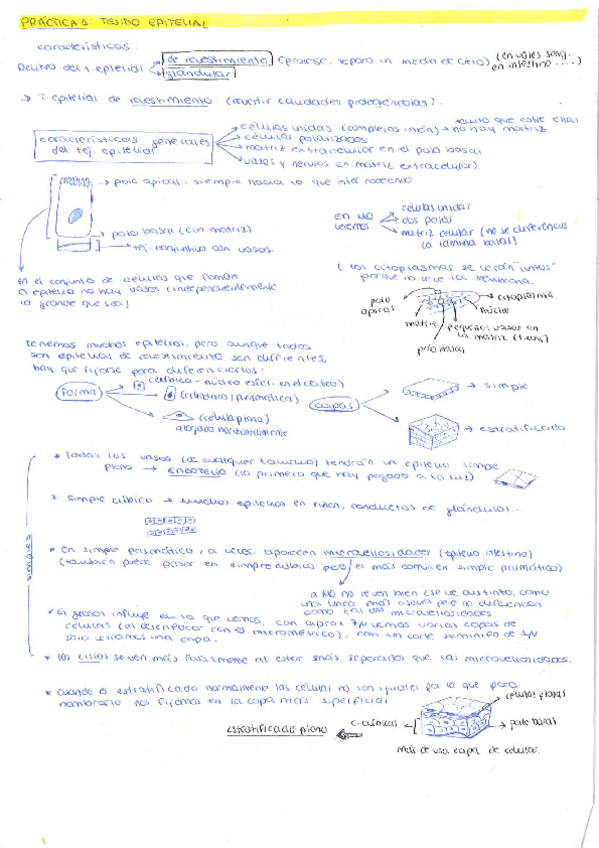 PRÁCTICA 1: TEJIDO EPITELIAL
características:
Dentro del t. epitelial
de revestimiento (protege, separa un medio de otro) (en vasos sang., en intestino ....)
glandular
→ T. epitelial de revestimiento: (revestir cavidades
características generales del tej. epitelial
células unidas (complejos unión) → no hay matriz
células polarizadas
matriz extracelular en el polo basal
vasos y nervios en matriz extracelular).
→ polo apical: siempre hacia lo que está
→ polo basal (con matriz)
→ tej. conjuntivo con vasos.
en MO veremos
células unidas
dos polos
matriz celular (no se diferencia la lámina basal)
en el conjunto de células que forman
el epitelio no hay vasos (independientemente
lo grande que sea)
(los citoplasmas se verán "juntos"
porque no se ve la membrana.
polo apical
citoplasma
núcleo
matriz
pequeños vasos en la matriz
polo basal
tenemos muchos epitelios, pero aunque todos
son epitelios de revestimiento son diferentes,
hay que fijarse para diferenciarlos:
forma
(cúbico - núcleo esfér. en el centro)
(cilíndrica / prismática)
(célula plana)
alargado horizontalmente
capas
→ simple
→ estratificado
simples
* Todos los vasos (de cualquier tamaño) tendrán un epitelio simple
plano → ENDOTELIO (lo primero que hay pegado a la luz)
* simple cúbico → muchos epitelios en riñón, conductos de glándulas...
* en simple prismático, a veces, aparecen microvellosidades (epitelio intestino)
(también puede pasar en simple cúbico pero es más común en simple prismático)
a MO no se ven bien (se ve distinto, como
una línea más oscura pero no diferencian
como tal las microvellosidades.
* El grosor influye en lo que vemos, con aprox 7µ vemos varias capas de
células (al desenfocar con el micrométrico), con un corte
solo veríamos una capa.
* los cilios se ven más fácilmente al estar más separados que las microvellosidades.
* cuando es estratificado normalmente las células no son iguales por lo que para
nombrarlo nos fijamos en la capa más superficial
células planas
c. cúbicas
polo basal
estratificado plano
más de una capa de células.